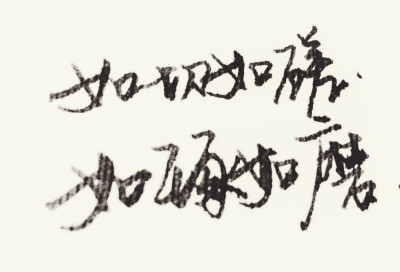 如切如磋.
如琢如磨.